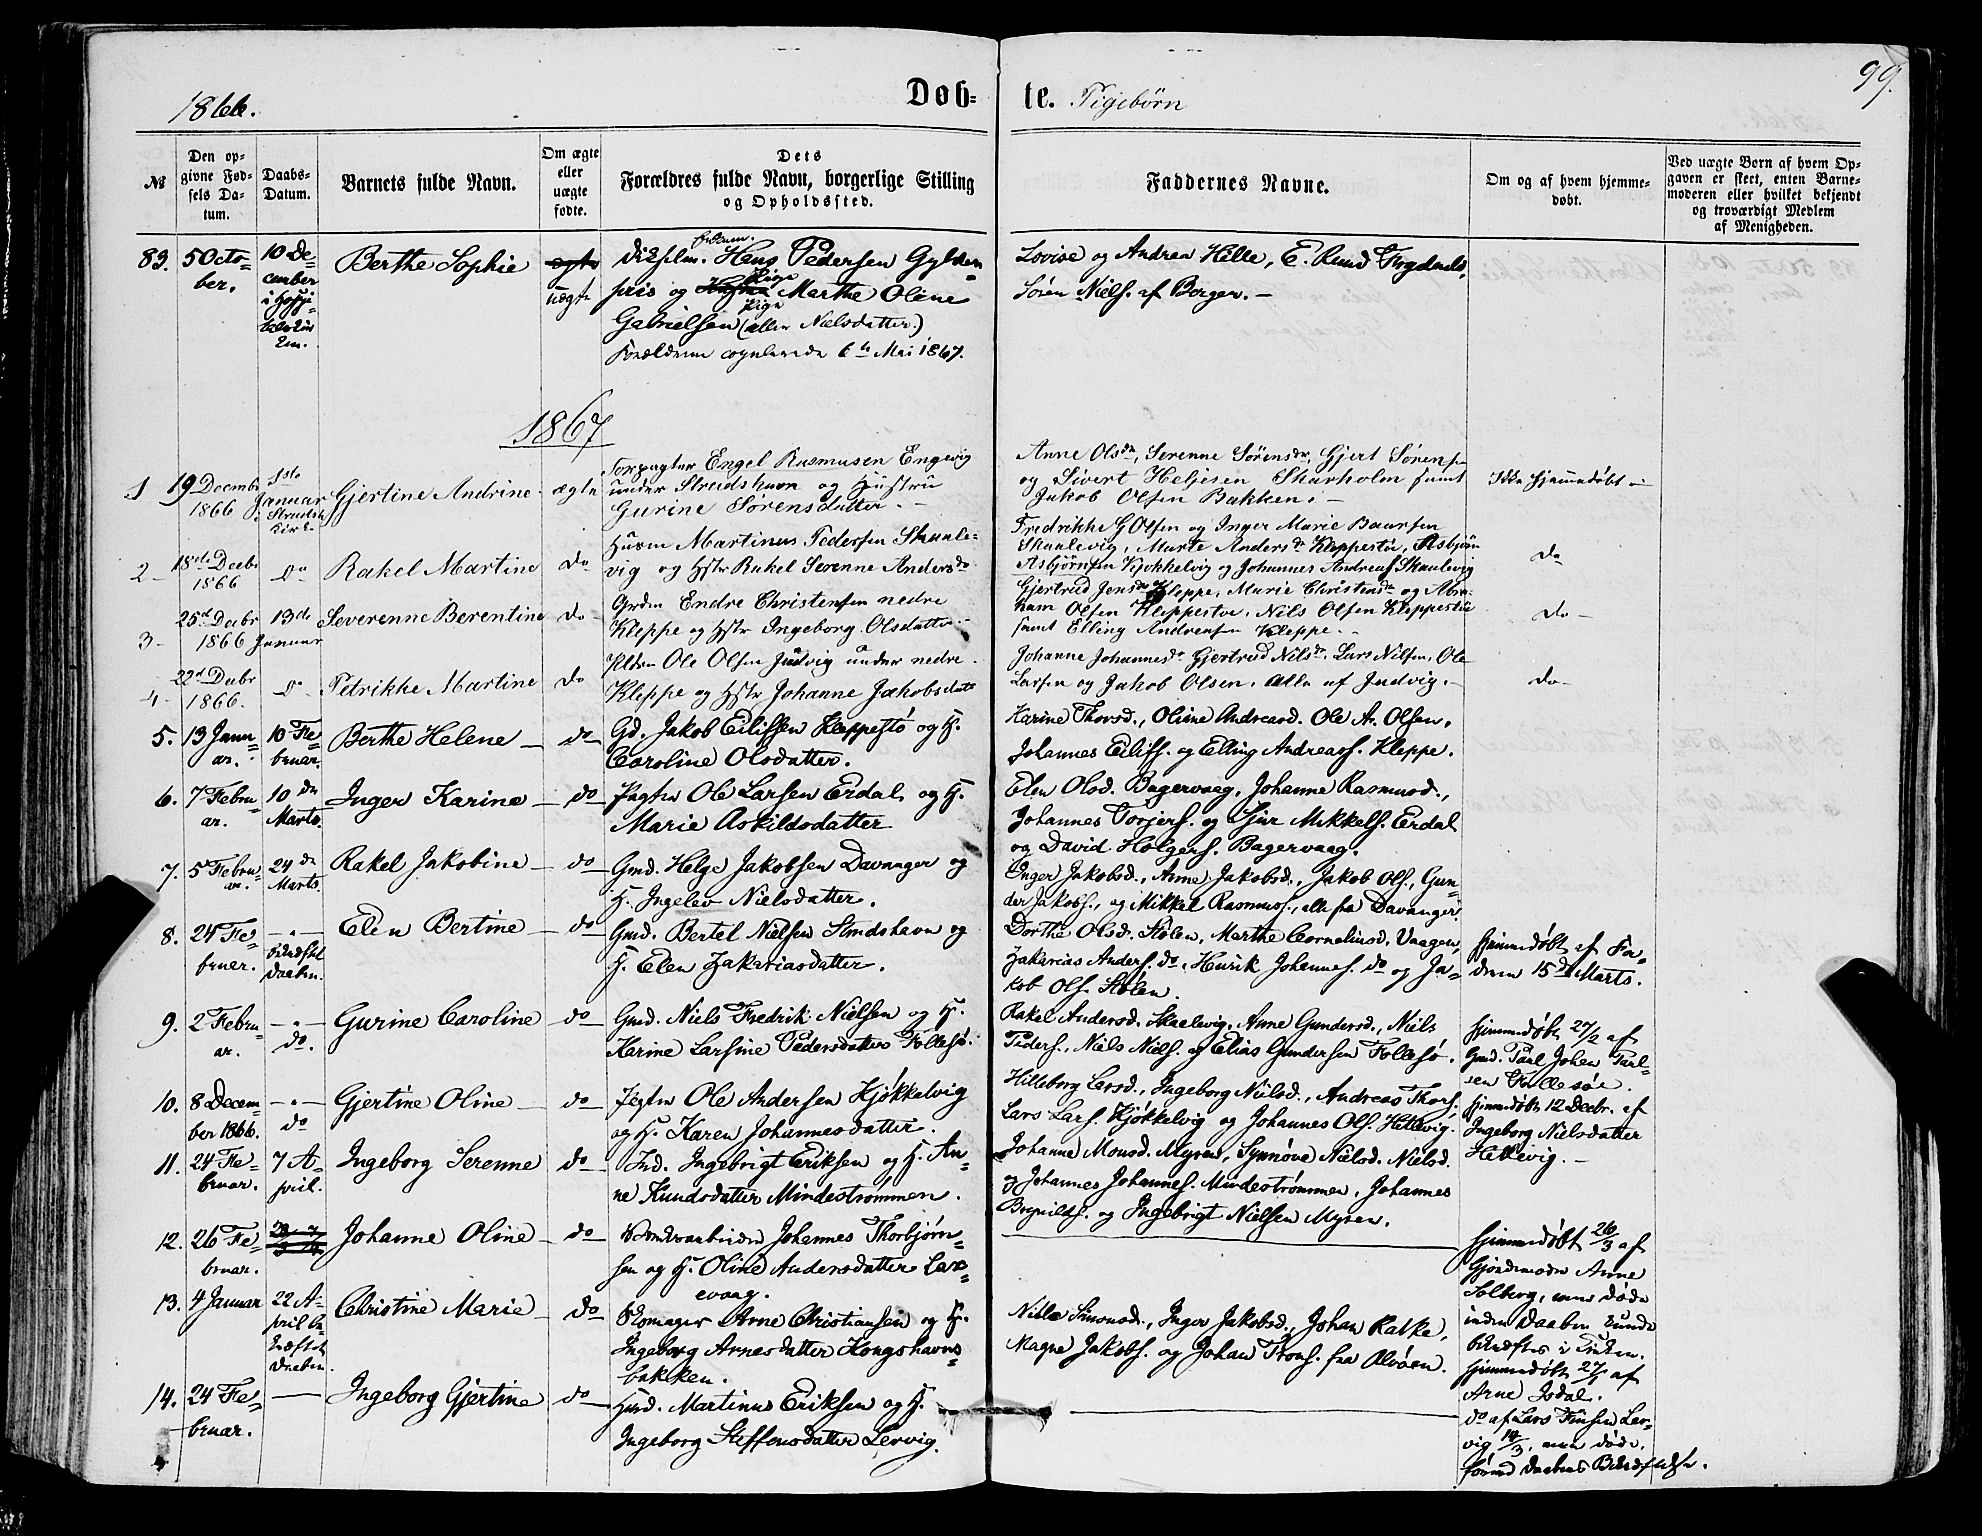 1866.
Døb-
te. Pigebørn
99.
№
Den op-
givne Fød-
sels Da-
tum.
Daabs-
Datum.
Barnets fulde Navn.
Om ægte
eller
uægte
fødte.
Dets
Forældres fulde Navn, borgerlige Stilling
og Opholdssted.
Faddernes Navne.
Om og af hvem hjemme-
døbt.
Ved uægte Børn af hvem Op-
gaven er skeet, enten Barne-
moderen eller hvilket bekjendt
og troværdigt Medlem
af Menigheden.
83. 5 Octo-
ber.
10 De-
cember
i
Berthe Sophie
ægte
uægte
Hans Pedersen Gylden-
pris og Pige Marthe Oline
Gabrielsen (eller Nielsdatter.)
Forældrene copulerede 6te Mai 1867.
Lovise og Andrea Hille, E. Rund
Søren Niels. af Bergen. -
1867
1
19 Decembr
1866
1ste
Januar
i Strudsh.
Kirke
Gjertine Andrine
ægte
Forpagter Engel Rasmusen Engevig
under Strudshavn og Hustru
Gurine Sørensdatter. -
Anne Olsdtr, Serenne Sørensdr, Gjert Sørensen
og Sivert Heljesen Skarholm samt
Jakob Olsen Bakken. -
Ikke hjemmedøbt -
2 -
18de Decbr
1866
do
Rakel Martine
do
Husm Martinus Pedersen Skaale-
vig og Hstr Rakel Serenne Andersdtr
Fredrikke G Olsen og Inger Marie Baarsen
Skaalevig, Marte Andersdr Kleppestø, Asbjørn
Asbjørnsen Kjøkkelvig og Johannes Andreas Skaalevig
do
3 -
25de Decbr
1866
13de
Januar
Severenne Berentine
do
Grdm Endre Christensen nedre
Kleppe og Hstr Ingeborg Olsdatter -
Gjertrud Jensdr Kleppe, Marie Christensdr og Abra-
ham Olsen Kleppestø, Nils Olsen Kleppestø
samt Elling Andreasen Kleppe. -
do -
4 -
22de Decbr
1866.
do
Petrikke Martine
do
Ole Olsen Judvig under nedre
Kleppe og Hstr Johanne Jakobsdatr
Johanne Johannesdr Gjertrud Nilsdr, Lars Nilsen, Ole
Larsen og Jakob Olsen, alle af Judvig. -
do -
5. 13 Janu-
ar.
10 Fe-
bruar.
Berthe Helene -
do
Gd. Jakob Eilifsen Kleppestø og H.
Caroline Olsdatter.
Karine Thorsd., Oline Andreasd. Ole A. Olsen,
Johannes Eilifs. og Elling Andreass. Kleppe.
6. 7 Febru-
ar.
10de
Marts.
Inger Karine -
do
Ole Larsen Erdal, og H.
Marie Askildsdatter
Elen Olsd. Bagervaag, Johanne Rasmusd.,
Johannes Torjers. og Sjur Mikkels. Erdal
og David Holgers. Bagervaag.
7. 5 Febru-
ar.
24de
Marts.
Rakel Jakobine -
do
Gmd. Helge Jakobsen Davanger og
H. Ingelev Nielsdatter.
Inger Jakobsd., Anne Jakobsd., Jakob Ols., Gun-
der Jakobs., og Mikkel Rasmuss., alle fra Davanger.
8. 24 Fe-
bruar.
- " -
bekræftet
Daaben.
Elen Bertine -
do
Gmd. Bertel Nielsen Strudshavn og
H. Elen Zakariasdatter.
Dorthe Olsd. Stølen, Marthe Corneliusd. Vaagen,
Zakarias Anders. do, Henrik Johannes. do og Ja-
kob Ols. Stølen.
hjemmedøbt af Fa-
deren 15de Marts.
9. 2 Febru-
ar.
- " -
do.
Gurine Caroline
do
Gmd. Niels Fredrik Nielsen og H.
Karine Larsine Pedersdatter Follesø.
Rakel Andersd. Skaalevig, Anne Gundersd., Niels
Peders., Niels Niels. og Elias Gundersen Follesø.
hjemmedøbt 27/2 af
Gmd. Paul Johan Paul-
sen Follesøe.
10. 8 Decem-
ber 1866.
- " -
do
Gjertine Oline -
do
Ole Andersen Kjøkkelvig
og H. Karen Johannesdatter.
Hilleborg Larsd., Ingeborg Nielsd., Andreas Thors.,
Lars Lars. Kjøkkelvig og Johannes Ols. Hetlevig.
hjemmedøbt 12 Decbr. af
Ingeborg Nielsdatter
Hetlevig. -
11. 24 Fe-
bruar.
7 A-
pril.
Ingeborg Serenne
do
Ind. Ingebrigt Eriksen og H. An-
ne Knudsdatter Mindestrømmen.
Johanne Monsd. Myren, Synnøve Nielsd. Nielsd.
og Johannes Johannes. Mindestrømmen, Johannes
Brynilds. og Ingebrigt Nielsen Myren.
12. 26 Fe-
bruar.
Johanne Oline -
do
Johannes Thorbjørn-
sen og H. Oline Andersdatter Lax-
evaag.
hjemmedøbt 26/3 af
Gjordemoder Anne
Solberg, men døde
inden Daaben kunde
bekræftes i Kirken.
13. 4 Januar
22 A-
pril be-
kræftet
Daaben.
Christine Marie -
do
Blomager Arne Christiansen og H.
Ingeborg Arnesdatter Kongshavns-
bakken.
Nille Simonsd., Inger Jakobsd., Johan Ratke,
Magne Jakobs. og Johan Trons. fra Alvøen.
hjemmedøbt 27/1 af
Arne Isdal.
14. 24 Fe-
bruar.
Ingeborg Gjertine
do
Husd. Martinus Eriksen og H.
Ingeborg Steffensdatter Lervig.
do af Lars Finsen Ler-
vig 19/3, men døde
førend Daabens Bekræftelse.